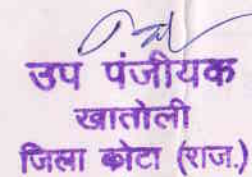 उप पंजीयक
खातोली
जिला कोटा (राज.)